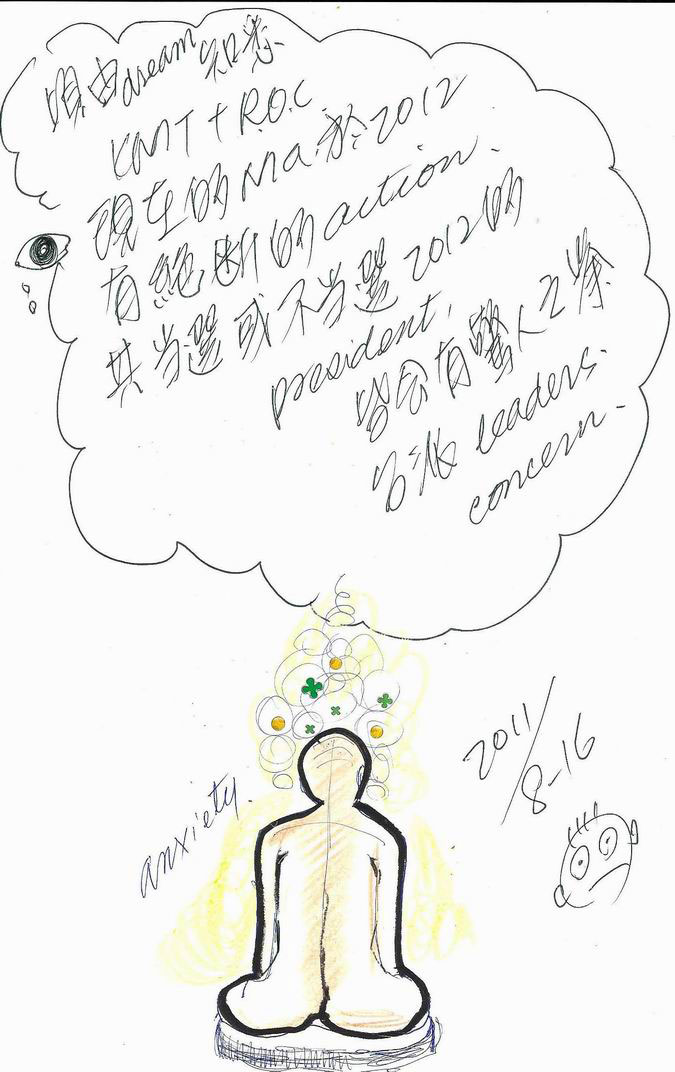 由dream知悉.
KMT + R.O.C.
現在的Ma.於2012
有絕断的action.
其当選或不当選2012的
president,
皆会有驚人之舉
台派leaders.
concern.
anxiety.
2011/8-16